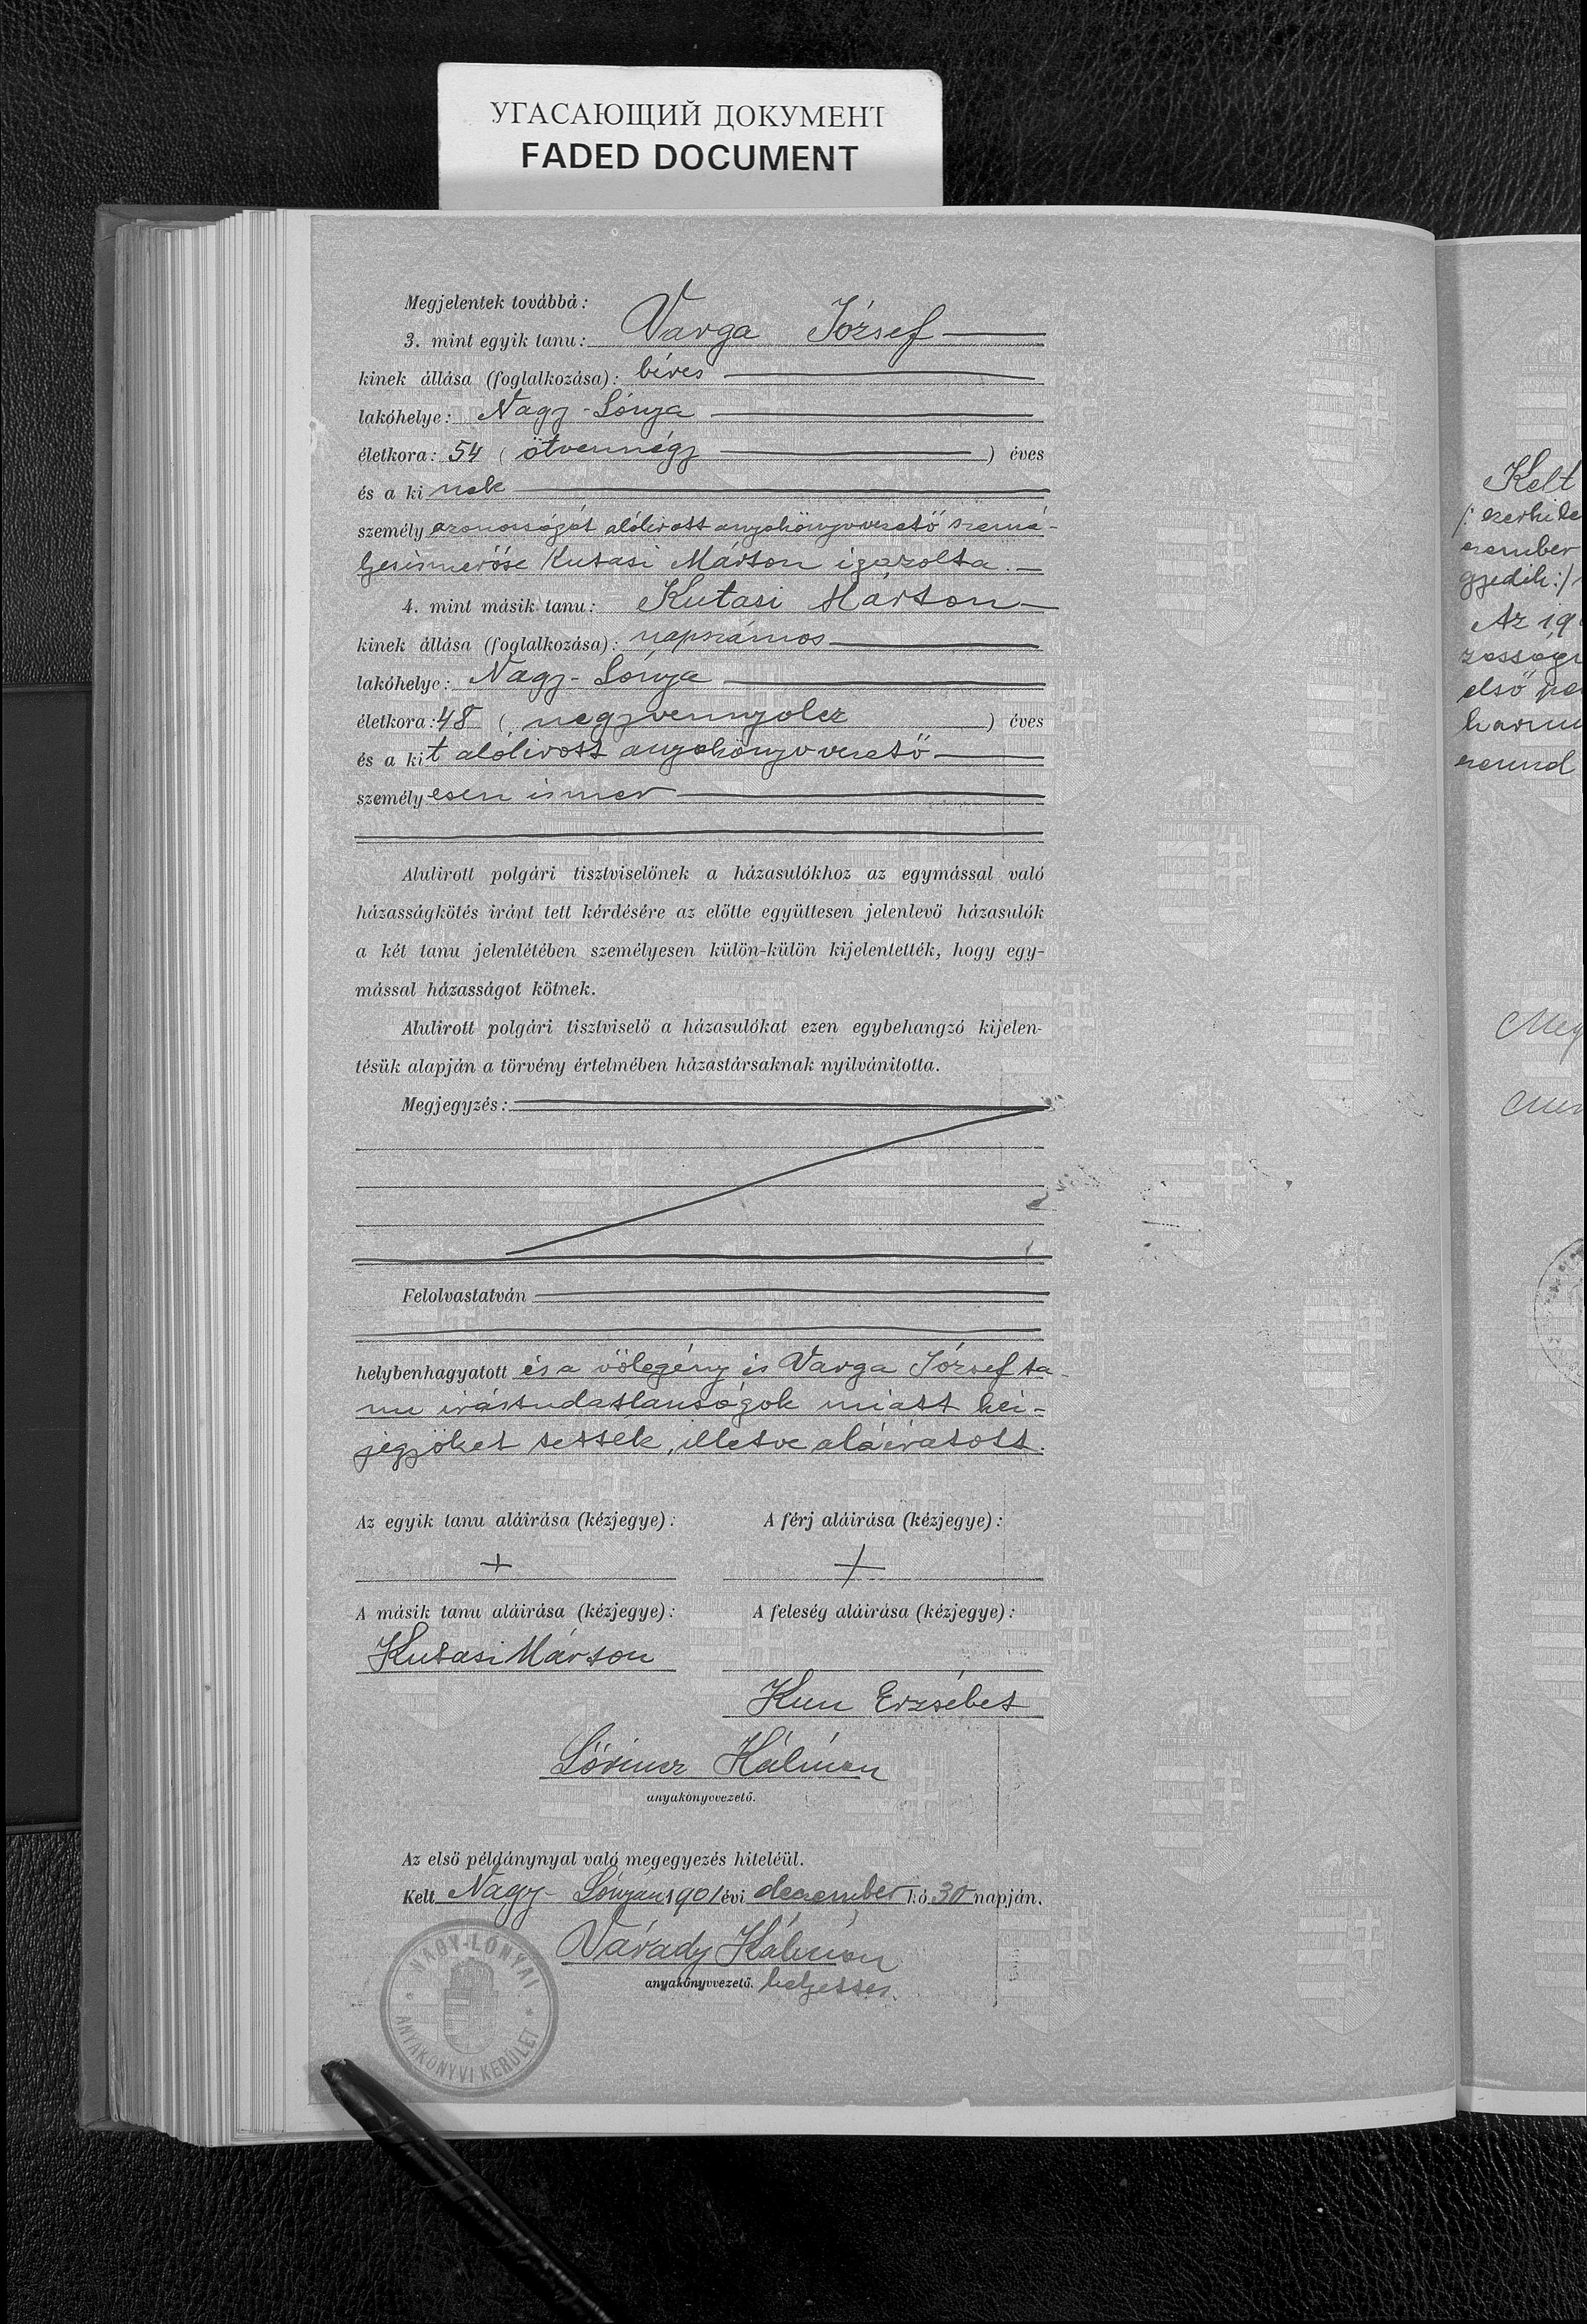 УГАСАЮЩИЙ ДОКУМЕНТ
FADED DOCUMENT
Megjelentek továbbá:
3. mint egyik tanu: Varga József
kinek állása (foglalkozása): béres
lakóhelye: Nagy-Lónya
életkora: 54 (ötvennégy) éves
és a kinek
személyazonosságát alólirott anyakönyvvezető szemé-
lyesismerőse Kutasi Márton igazolta.
4. mint másik tanu: Kutasi Márton
kinek állása (foglalkozása): napszámos
lakóhelye: Nagy-Lónya
életkora: 48 (negyvennyolcz) éves
és a kit alólirott anyakönyvvezető
személyesen ismer
Alulirott polgári tisztviselőnek a házasulókhoz az egymással való
házasságkötés iránt tett kérdésére az előtte együttesen jelenlevő házasulók
a két tanu jelenlétében személyesen külön-külön kijelentették, hogy egy-
mással házasságot kötnek.
Alulirott polgári tisztviselő a házasulókat ezen egybehangzó kijelen-
tésük alapján a törvény értelmében házastársaknak nyilvánitotta.
Megjegyzés:
Felolvastatván
helybenhagyatott és a vőlegény és Varga József ta-
nu irástudatlanságok miatt kéz-
jegyöket tették, illetve aláiratott.
Az egyik tanu aláirása (kézjegye): A férj aláirása (kézjegye):
+ +
A másik tanu aláirása (kézjegye): A feleség aláirása (kézjegye):
Kutasi Márton
Kun Erzsébet
Lőrincz Kálmán
anyakönyvvezető.
Az első példánynyal való megegyezés hiteléül.
Kelt Nagy-Lónyán 1901 évi december hó 30 napján.
Várady Kálmán
anyakönyvvezető. helyettes.
NAGY-LÓNYAI
ANYAKÖNYVI KERÜLET
Kelt
ezember
gyedik:)
Az 19
zasság
első